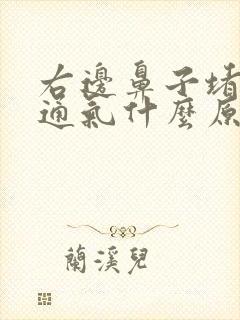 右邊鼻子堵
通氣什麼原
蘭溪兒